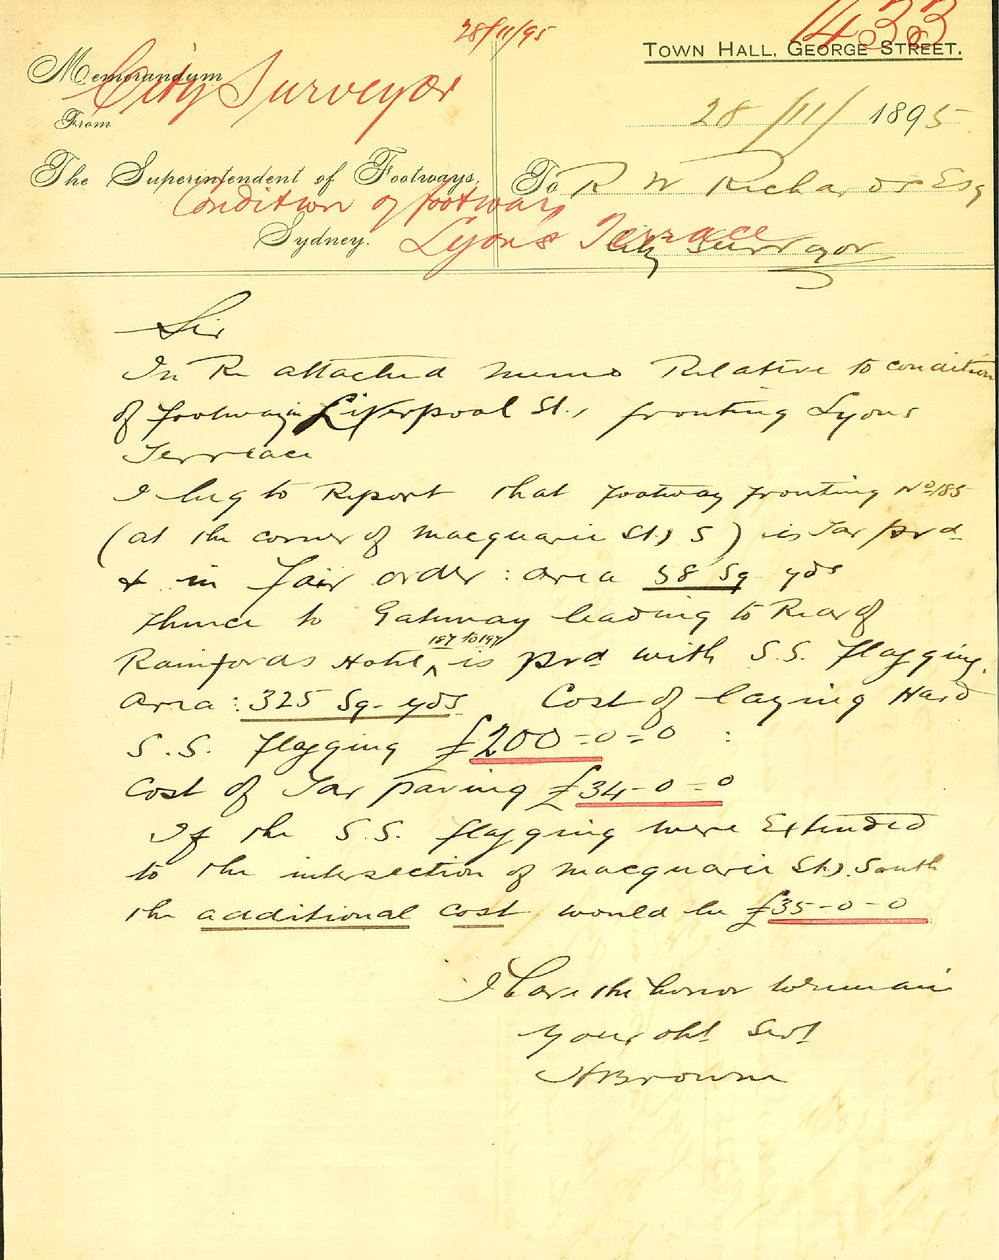 28/11/95
1433
TOWN HALL, GEORGE STREET.
Memorandum
City Surveyor
From
28/11/ 1895
The Superintendent of Footways,
To R W Richards Esq
Condition of footway
Sydney.
Lyons Terrace
City Surveyor
Sir
In Re attached memo Relative to condition
of footway in Liverpool St., fronting Lyons
Terrace
I beg to Report that footway fronting No 185
(at the corner of Macquarie St, S) is Tar pvd
& in fair order: area 58 Sq yds
Thence to Gateway leading to Rear of
187 to 197
Rainfords Hotel ^ is pvd with S.S. flagging.
area: 325 Sq- yds Cost of laying Hard
S.S. flagging £200=0=0 :
Cost of Tar paving £34-0=0
If the S.S. flagging were Extended
to the intersection of Macquarie St, South
the additional cost would be £35-0-0
I have the honor to remain
your obt Servt
HBrowne